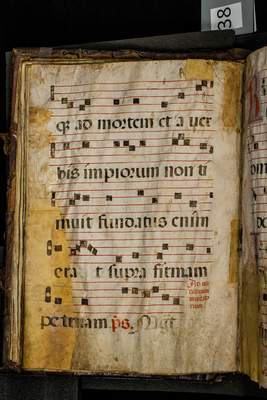 38
q̃ ad mortem et a ver
bis impiorum non ti
muit fundatus enim
era t supra firmam
petram. ps.